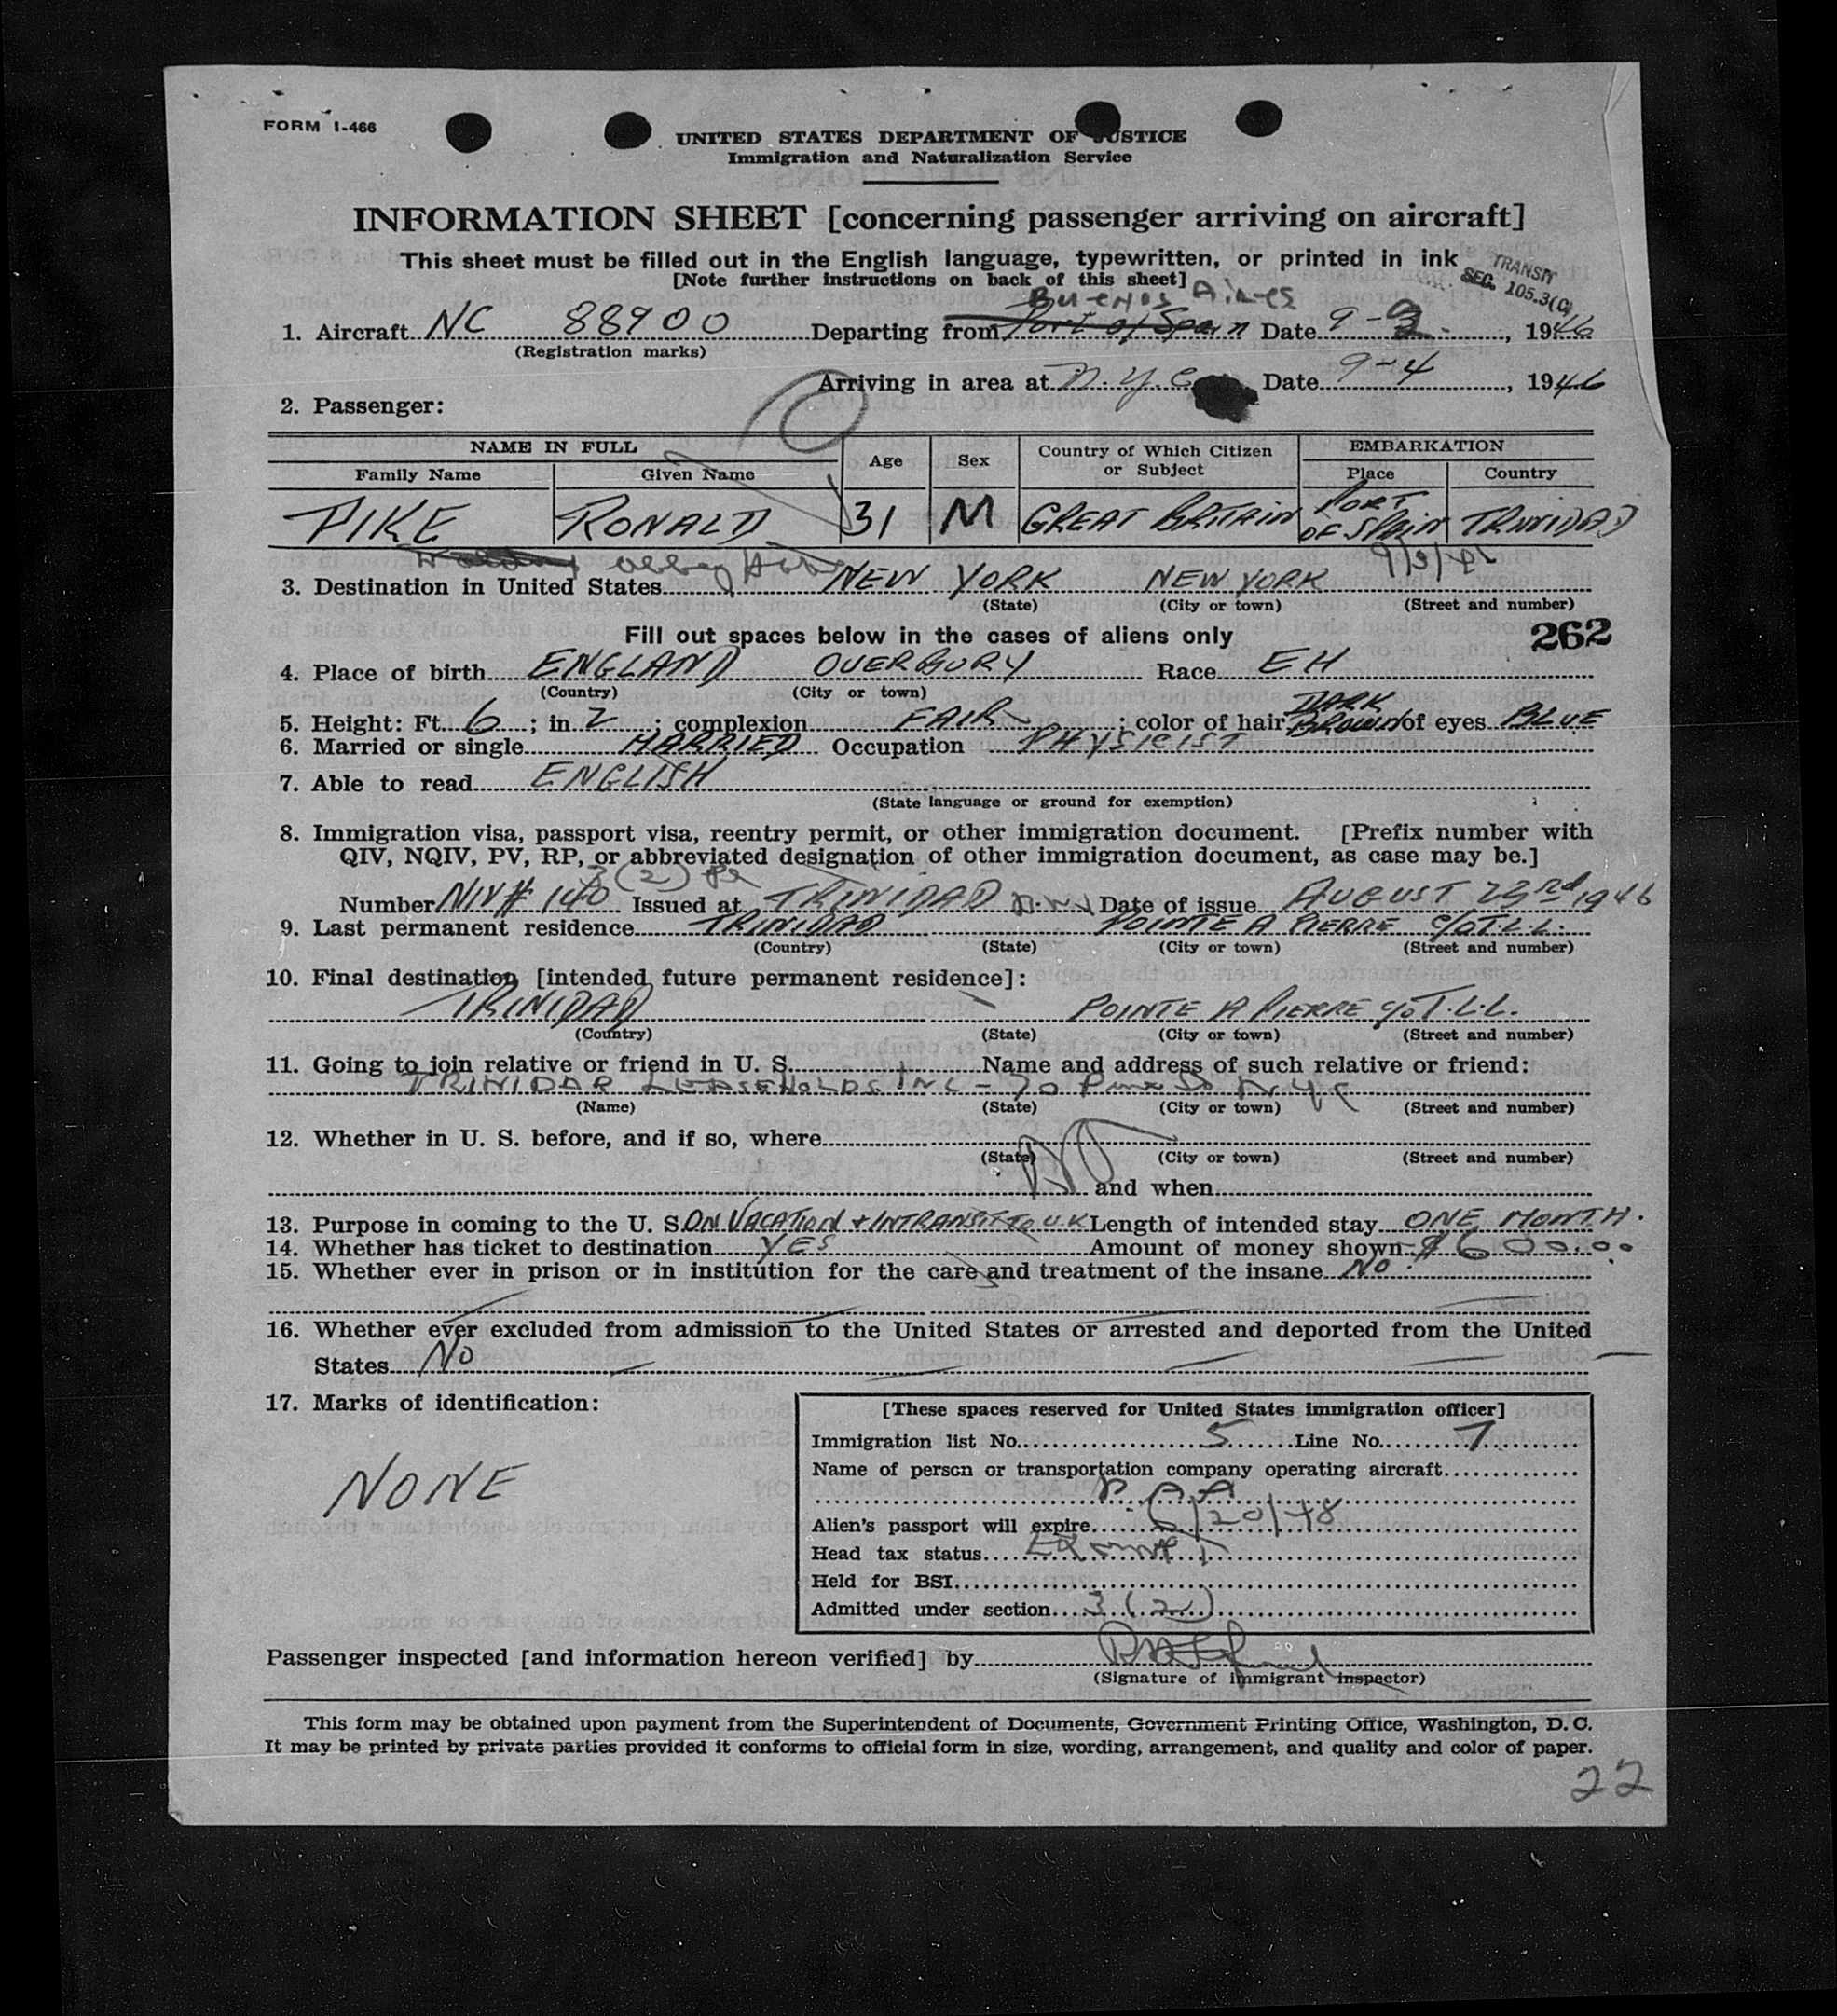 FORM I-466
UNITED STATES DEPARTMENT OF JUSTICE
Immigration and Naturalization Service
INFORMATION SHEET [concerning passenger arriving on aircraft]
This sheet must be filled out in the English language, typewritten, or printed in ink
[Note further instructions on back of this sheet]
TRANSIT
SEC. 105.3(C)
Buenos Aires
1. Aircraft NC 88900 Departing from Port of Spain Date 9-3, 1946
(Registration marks)
Arriving in area at N.Y.C. Date 9-4, 1946
2. Passenger:
NAME IN FULL Age Sex Country of Which Citizen or Subject EMBARKATION
Family Name Given Name Place Country
PIKE RONALD 31 M GREAT BRITAIN PORT OF SPAIN TRINIDAD
9/3/46
3. Destination in United States NEW YORK NEW YORK
(State) (City or town) (Street and number)
Fill out spaces below in the cases of aliens only 262
4. Place of birth ENGLAND OVERBURY Race EH
(Country) (City or town)
5. Height: Ft. 6; in 2; complexion FAIR; color of hair DARK BROWN of eyes BLUE
6. Married or single MARRIED Occupation PHYSICIST
7. Able to read ENGLISH
(State language or ground for exemption)
8. Immigration visa, passport visa, reentry permit, or other immigration document. [Prefix number with
QIV, NQIV, PV, RP, or abbreviated designation of other immigration document, as case may be.]
3(2)
Number NIV# 140 Issued at TRINIDAD B.W.I Date of issue AUGUST 23rd 1946
9. Last permanent residence TRINIDAD POINTE A PIERRE c/o T.L.L.
(Country) (State) (City or town) (Street and number)
10. Final destination [intended future permanent residence]:
TRINIDAD POINTE A PIERRE c/o T.L.L.
(Country) (State) (City or town) (Street and number)
11. Going to join relative or friend in U. S. Name and address of such relative or friend:
TRINIDAD LEASEHOLDS INC - 70 Pine St N.Y.C
(Name) (State) (City or town) (Street and number)
12. Whether in U. S. before, and if so, where
(State) (City or town) (Street and number)
NO and when
13. Purpose in coming to the U. S. ON VACATION + INTRANSIT TO U.K Length of intended stay ONE MONTH.
14. Whether has ticket to destination YES Amount of money shown $600.00
15. Whether ever in prison or in institution for the care and treatment of the insane NO
16. Whether ever excluded from admission to the United States or arrested and deported from the United
States NO
17. Marks of identification:
NONE
[These spaces reserved for United States immigration officer]
Immigration list No. 5 Line No. 7
Name of person or transportation company operating aircraft
P.A.A
Alien's passport will expire 6/20/48
Head tax status Exempt
Held for BSI
Admitted under section 3(2)
Passenger inspected [and information hereon verified] by
(Signature of immigrant inspector)
This form may be obtained upon payment from the Superintendent of Documents, Government Printing Office, Washington, D. C.
It may be printed by private parties provided it conforms to official form in size, wording, arrangement, and quality and color of paper.
22